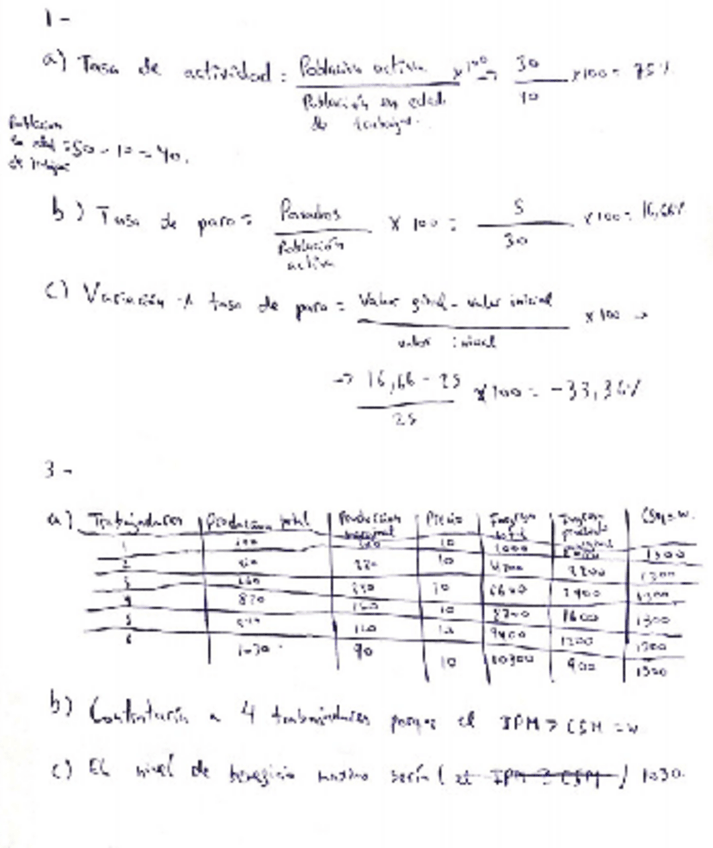 1-
a) Tasa de actividad = Población activa / Población en edad de trabajar x100 → 30 / 40 x100 = 75%
Población en edad de trabajar = 50 - 10 = 40.
b) Tasa de paro = Parados / Población activa x 100 = 5 / 30 x100 = 16,66%
c) Variación tasa de paro = Valor final - valor inicial / valor inicial x100 →
→ 16,66 - 25 / 25 x100 = -33,36%
3-
a) Trabajadores | Producción total | Producción marginal | Precio | Ingreso total | Ingreso producto marginal | CSM=w.
1 | 10 | 1000 | 1300
2 | 10 | 2200 | 1300
3 | 660 | 10 | 6600 | 2400 | 1300
4 | 820 | 160 | 10 | 1600 | 1300
5 | 120 | 10 | 9400 | 1200 | 1300
6 | 1030 | 90 | 10 | 10300 | 900 | 1300
b) Contrataría a 4 trabajadores porque el IPM > CSM = w
c) El nivel de beneficio maximo sería ( ) 1030.